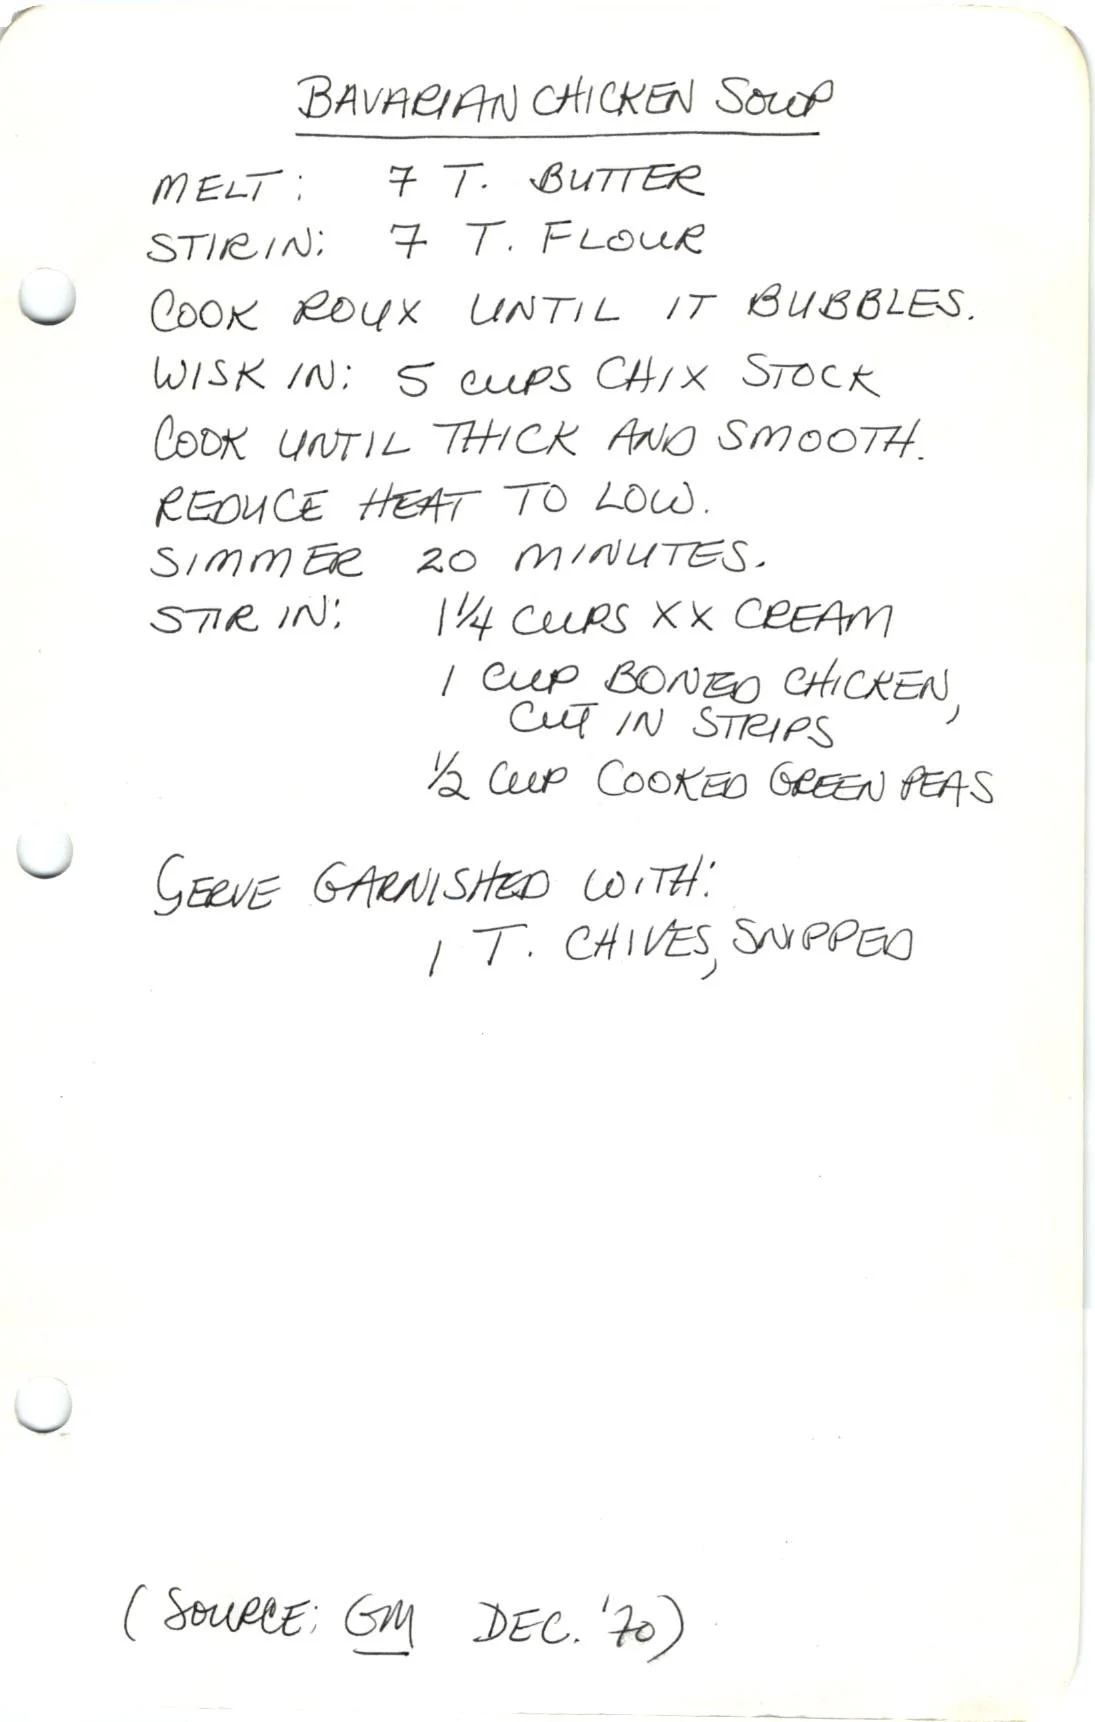 BAVARIAN CHICKEN SOUP
MELT: 7 T. BUTTER
STIR IN: 7 T. FLOUR
COOK ROUX UNTIL IT BUBBLES.
WISK IN: 5 CUPS CHIX STOCK
COOK UNTIL THICK AND SMOOTH.
REDUCE HEAT TO LOW.
SIMMER 20 MINUTES.
STIR IN: 1 1/4 CUPS XX CREAM
1 CUP BONED CHICKEN,
CUT IN STRIPS
1/2 CUP COOKED GREEN PEAS
SERVE GARNISHED WITH:
1 T. CHIVES, SNIPPED
(SOURCE: GM DEC. '70)